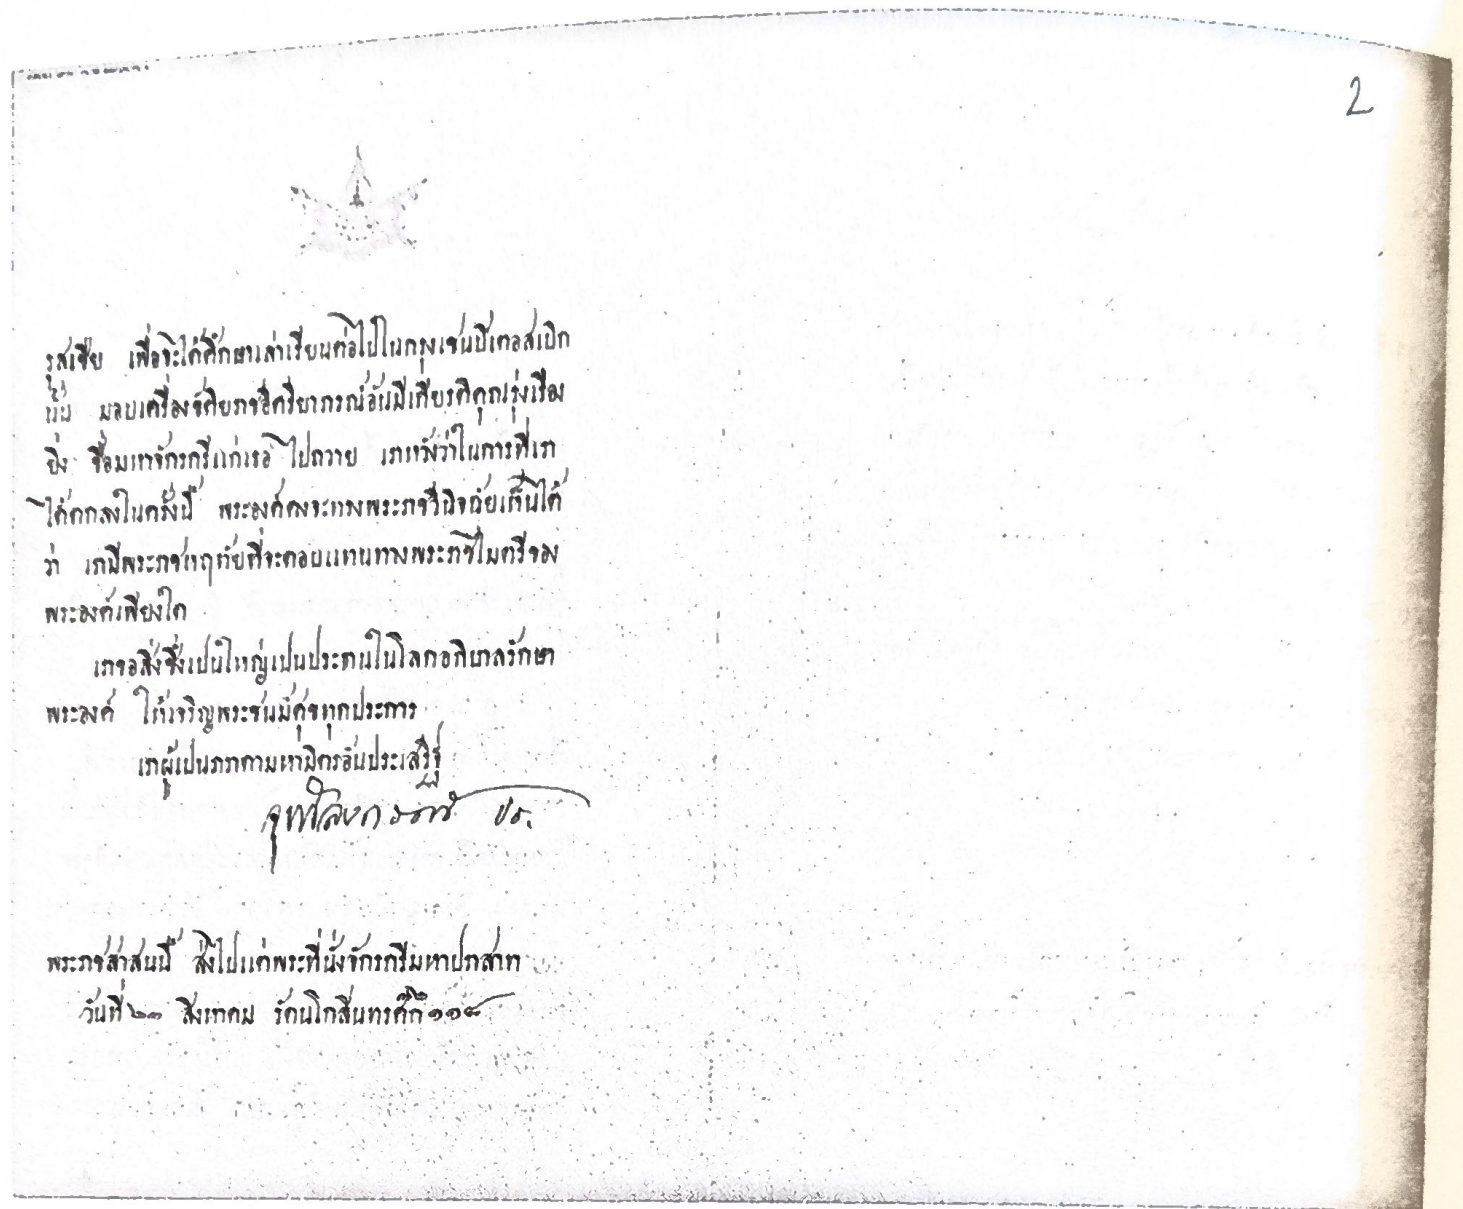 2
รุสเซีย เพื่อจะได้ศึกษาเล่าเรียนต่อไปในกรุงเซนปีเตอสเบิก
นั้น มอบเครื่องขัติยราชอิศริยาภรณ์อันมีเกียรติคุณรุ่งเรือง
ยิ่ง ชื่อมหาจักรกรีแก่เธอ ไปถวาย เราหวังว่าในการที่เรา
ได้ตกลงในครั้งนี้ พระองค์คงจะทรงพระราชวินิจฉัยเห็นได้
ว่า เรามีพระราชหฤทัยที่จะตอบแทนทางพระราชไมตรีของ
พระองค์เพียงใด
เราขอสิ่งซึ่งเปนใหญ่เปนประธานในโลกอภิบาลรักษา
พระองค์ ให้เจริญพระชนม์ศุขทุกประการ
เราผู้เปนภราดามหามิตรอันประเสริฐ
จุฬาลงกรณ์ ปร.
พระราชสาสนนี้ ส่งไปแต่พระที่นั่งจักรกรีมหาปราสาท
วันที่ ๒๓ สิงหาคม รัตนโกสินทรศก ๑๑๘